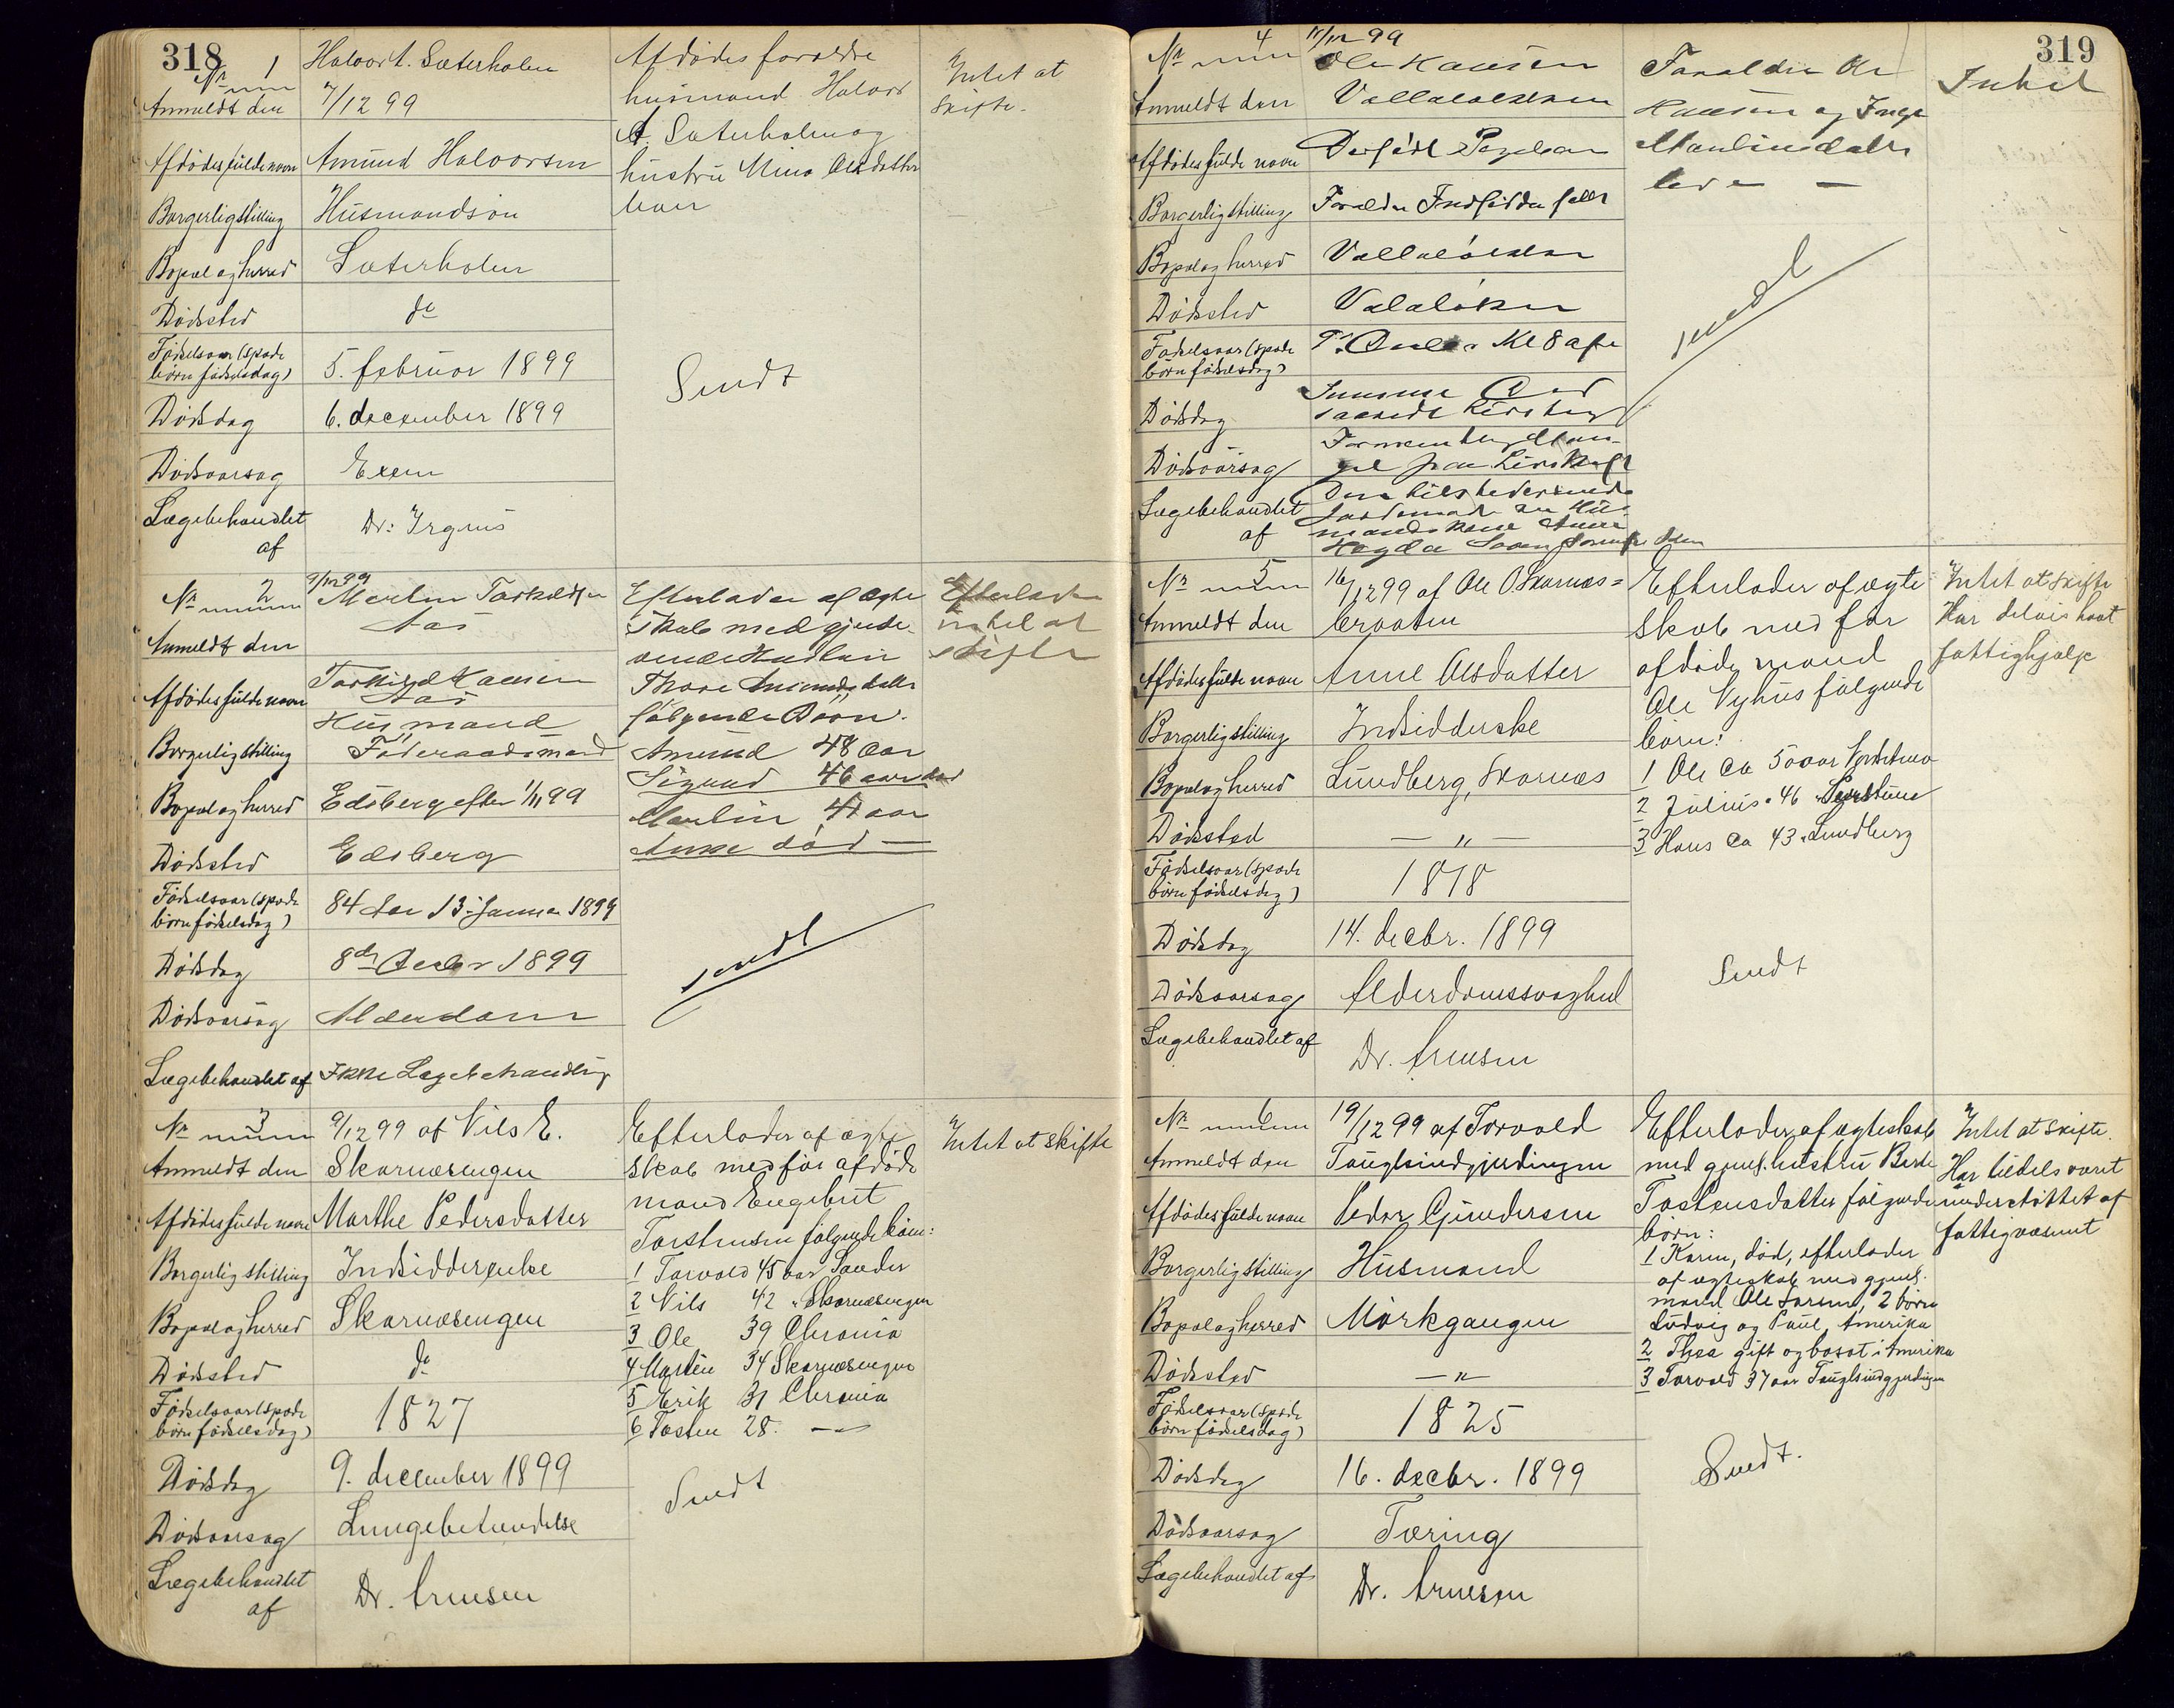 318
Nr 1
Anmeldt den
Halvor A. Sæterholen
7/12 99
Afdødes fulde navn
Amund Halvorsen
Borgerlig stilling
Husmandsøn
Bopæl og herred
Sæterholen
Dødssted
do
Fødselsaar (spæde
børn fødselsdag)
5. februar 1899
Dødsdag
6. december 1899
Dødsaarsag
Exem
Lægebehandlet
af
Dr.
Afdødes forældre
husmand Halvor
A. Sæterholen og
hustru Olesdatter
Intet at
skifte.
Sendt
Nr 2
Anmeldt den
9/12 99
Martin Torkildsen
Aas
Afdødes fulde navn
Torkild Hansen
Aas
Borgerlig stilling
Husmand
Føderaadsmand
Bopæl og herred
Edsberg efter 1/11 99
Dødssted
Edsberg
Fødselsaar (spæde
børn fødselsdag)
84 Aar 13. Januar 1899
Dødsdag
8de Decbr 1899
Dødsaarsag
Alderdom
Lægebehandlet af
Ikke Lægebehandling
Efterlader af ægte
skab med gjenle-
vende Hustru
Thore Amundsdatter
følgende Børn.
Amund 48 Aar
Sigurd 46 aar død
Martin 41 aar
Anne død —
Efterlader
intet at
skifte
sendt
Nr 3
Anmeldt den
9/12 99 af Nils E.
Skarnæsengen
Afdødes fulde navn
Marthe Pedersdatter
Borgerlig stilling
Indsidderenke
Bopæl og herred
Skarnæsengen
Dødssted
do
Fødselsaar (spæde
børn fødselsdag)
1827
Dødsdag
9. december 1899
Dødsaarsag
Lungebetændelse
Lægebehandlet
af
Dr. Arnesen
Efterlader af ægte
skab med før afdøde
mand Engebret
Torstensen følgende børn:
1 Torvald 45 aar Sander
2 Nils 42 " Skarnæsengen
3 Ole 39 Chrania
4 Martin 34 Skarnæsengen
5 Erik 31 Chrania
6 Tosten 28. — " —
Intet at skifte
Sendt
319
Nr 4
Anmeldt den
99
Ole Hansen
Afdødes fulde navn
Borgerlig stilling
Forældre Indsidderfolk
Bopæl og herred
Dødssted
Fødselsaar (spæde
børn fødselsdag)
Kl 8 aft
Dødsdag
Samme Dag
Dødsaarsag
Lægebehandlet
af
Den tilstedeværende
Forældre Ole
Hansen og Inge
Intet
sendt
Nr 5
Anmeldt den
16/12 99 af Ole O. Skarnæs=
braaten
Afdødes fulde navn
Anne Olsdatter
Borgerlig stilling
Indsidderske
Bopæl og herred
Lundberg, Skarnæs
Dødssted
— " —
Fødselsaar (spæde
børn fødselsdag)
1818
Dødsdag
14. decbr. 1899
Dødsaarsag
Alderdomssvaghed
Lægebehandlet af
Dr. Arnesen
Efterlader af ægte
skab med før
afdøde mand
Ole Nyhus følgende
børn:
1 Ole ca 50 aar
2 Julius " 46
3 Hans ca 43 " Lundberg
Intet at skifte
Har delvis havt
fattighjælp
Sendt
Nr 6
Anmeldt den
19/12 99 af Torvald
Tauglsindgjerdingen
Afdødes fulde navn
Peder Gundersen
Borgerlig stilling
Husmand
Bopæl og herred
Mørkgangen
Dødssted
— " —
Fødselsaar (spæde
børn fødselsdag)
1825
Dødsdag
16. decbr. 1899
Dødsaarsag
Tæring
Lægebehandlet af
Dr. Arnesen
Efterlader af ægteskab
med gjenl. hustru Berte
Tostensdatter følgende
børn:
1 Karen, død, efterlader
af ægteskab med gjenl.
mand Ole Larsen, 2 børn
Ludvig og Paul, Amerika
2 Thea gift og bosat i Amerika
3 Torvald 37 aar Tauglsindgjerdingen
Intet at skifte.
Har tildels været
understøttet af
fattigvæsenet
Sendt.